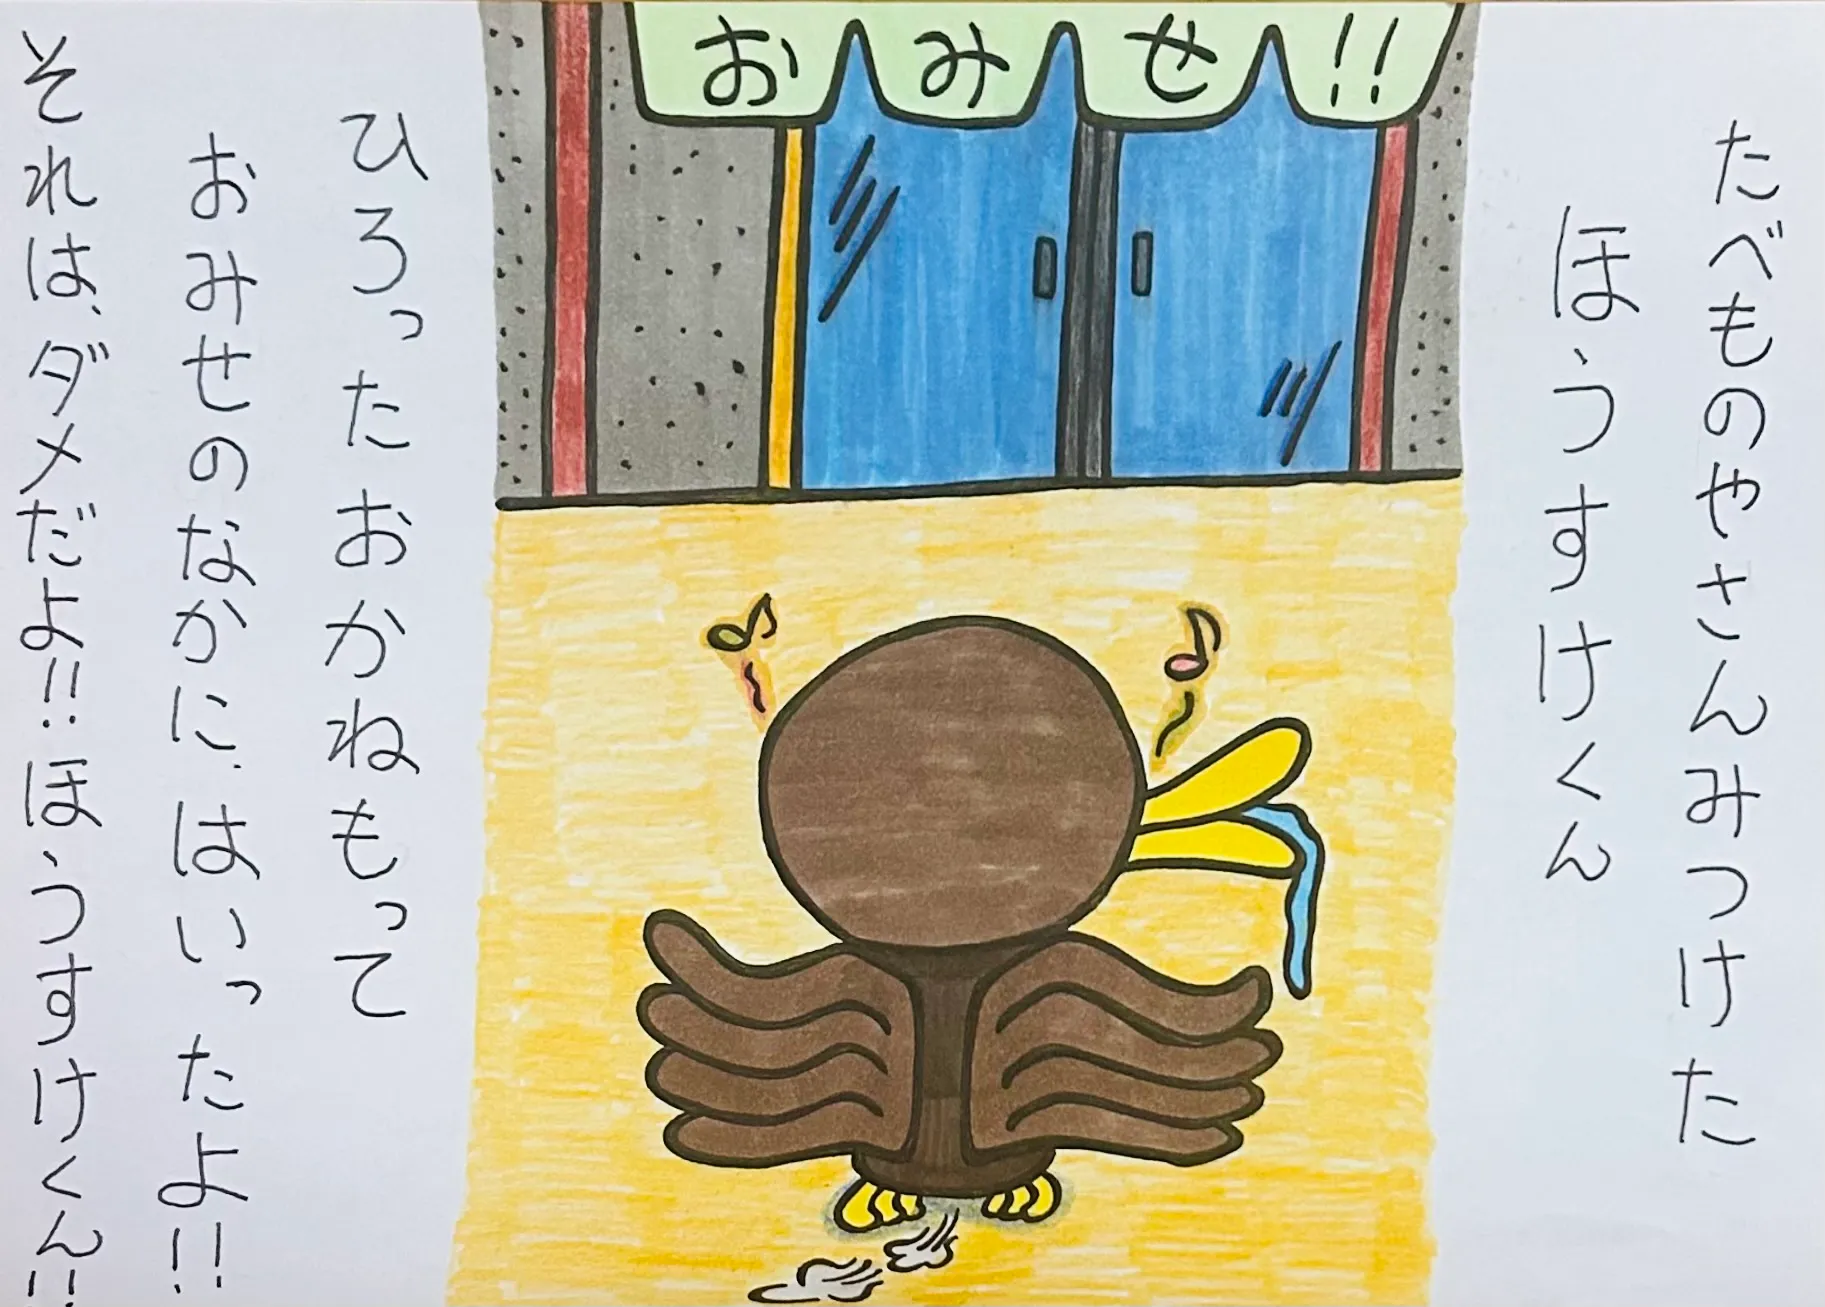 たべものやさんみつけた
ほ、うすけくん
おみせ!!
ひろったおかねもって
おみせのなかに、はいったよ!!
それは、ダメだよ!!ほ、うすけくん!!